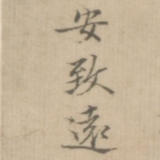 安致遠